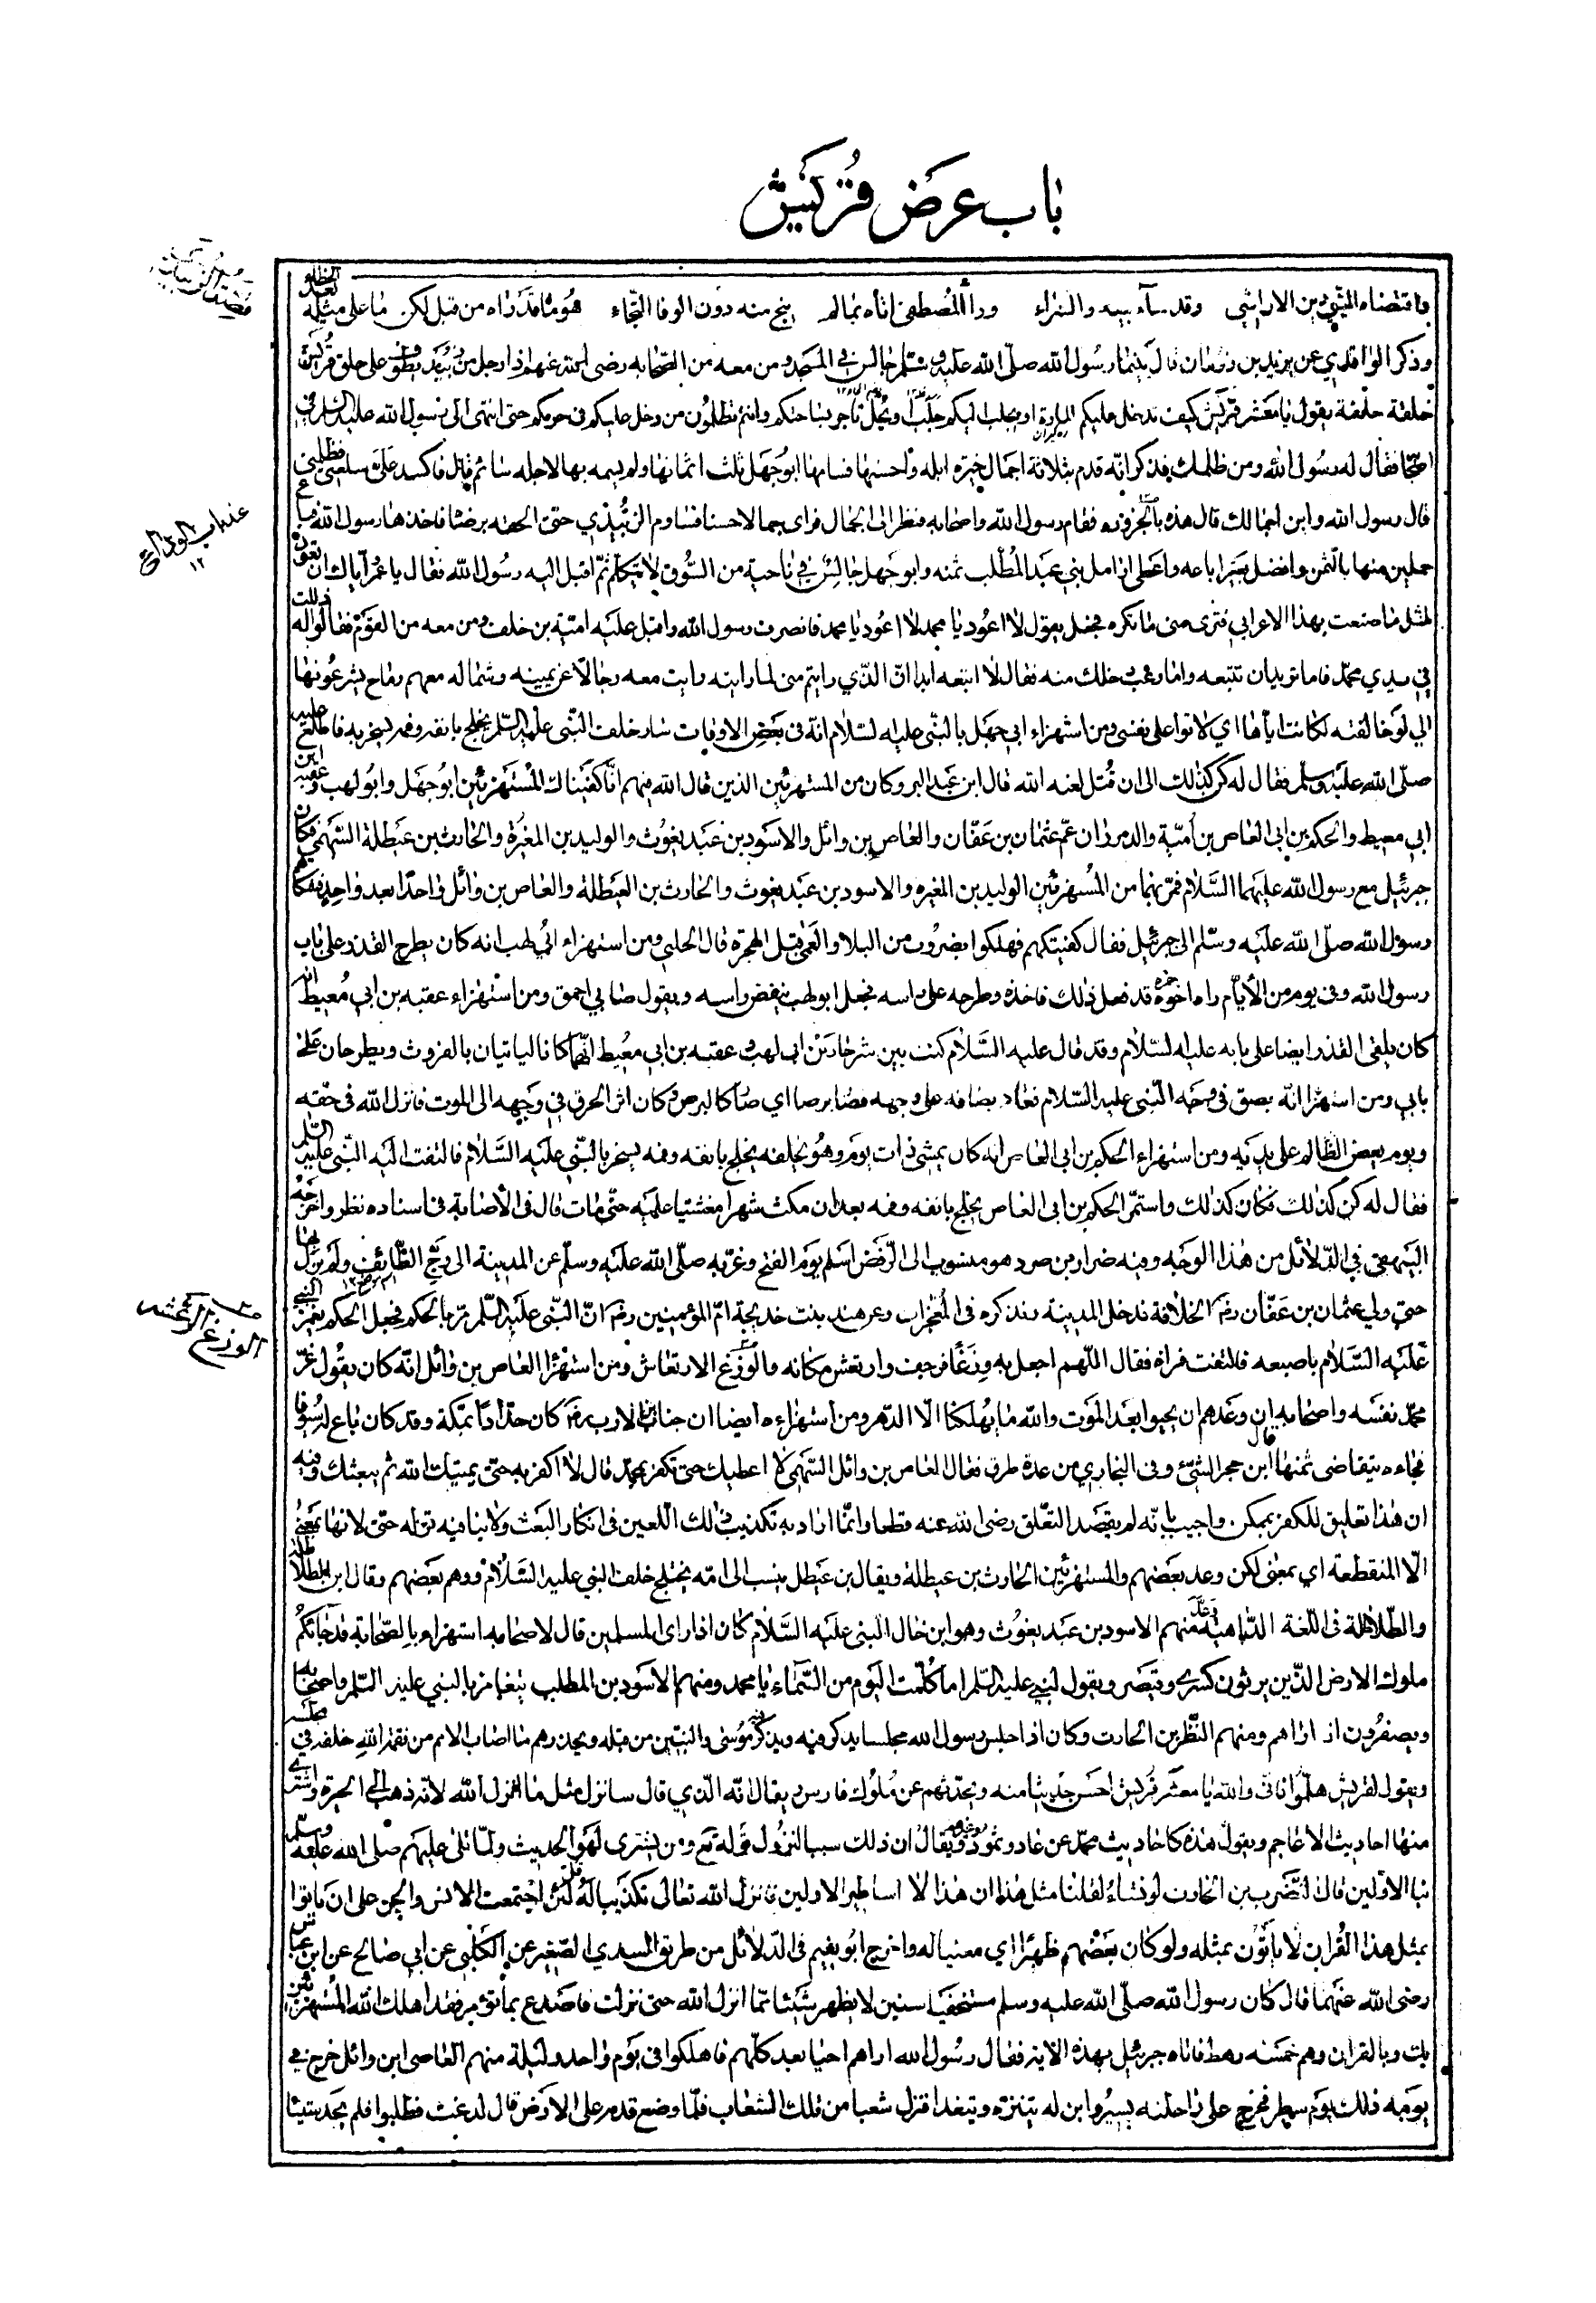 باب عرض قريش
واقتضاه النبي دين الاراشي وقد ساء بيعه والشراء ورأ المصطفى اتاه بما لم ينج منه دون الوفا النجاء هو ما قد راه من قبل لكن ما على مثله
وذكر الواقدي عن يزيد بن رومان قال بينما رسول الله صلى الله عليه وسلم جالس في المسجد ومن معه من الصحابه رضى الله عنهم اذا رجل من زبيد يطوف على حلق قريش
حلقة حلقة يقول يا معشر قريش كيف تدخل عليكم المادة او يجلب اليكم جلب او يحل تاجر بساحتكم وانتم تظلمون من دخل عليكم في حرمكم حتى انتهى الى رسول الله عليه السلام في
اصحابه فقال له رسول الله ومن ظلمك فذكر انه قدم بثلاثة اجمال خيرة ابله واحسنها فسامها ابو جهل ثلث اثمانها ولم يسمه بها لاجله سائم قال فاكسد على سلعتي فظلمني
قال رسول الله واين اجمالك قال هذه بالحزورة فقام رسول الله واصحابه فنظر الى الجمال فراى جمالا حسنا فساوم الزبيدي حتى الحقه برضا فاخذها رسول الله فباع
جملين منها بالثمن وافضل بعيرا باعه واعطى ارامل بني عبد المطلب ثمنه وابو جهل جالس في ناحية من السوق لا يتكلم ثم اقبل اليه رسول الله فقال يا عمرو اياك ان تعود
لمثل ما صنعت بهذا الاعرابي فترى منى ما تكره فجعل يقول لا اعود يا محمد لا اعود يا محمد فانصرف رسول الله واقبل عليه امية بن خلف ومن معه من القوم فقالوا له ذللت
في يدي محمد فاما تريد ان تتبعه واما رعب دخلك منه فقال لا اتبعه ابدا ان الذي رايتم منى لما رايته رايت معه رجالا عن يمينه وشماله معهم رماح يشرعونها
الي لو خالفته لكانت اياها اي لاتوا على نفسى ومن استهزاء ابي جهل بالنبى عليه السلام انه في بعض الاوقات سار خلف النبى عليه السلم يخلج بانفه وفمه يسخر به فاطلع عليه
صلى الله عليه وسلم فقال له كن كذالك الى ان قتل لعنه الله قال ابن عبد البر وكان من المستهزئين الذين قال الله فيهم انا كفيناك المستهزئين ابو جهل وابو لهب وعقبه ابن
ابي معيط والحكم بن ابى العاص بن أمية والد مروان عم عثمان بن عفان والعاص بن وائل والاسود بن عبد يغوث والوليد بن المغيرة والحارث بن عيطلة السهمي فكان
جبرئيل مع رسول الله عليهما السلام فمر بهما من المستهزئين الوليد بن المغيره والاسود بن عبد يغوث والحارث بن العيطلة والعاص بن وائل واحدا بعد واحد فشكاهم
رسول الله صلى الله عليه وسلم الى جبرئيل فقال كفيتكهم فهلكوا بضروب من البلا والعمى قبل الهجرة قال الحلبي ومن استهزاء ابي لهب انه كان يطرح القذر على باب
رسول الله وفى يوم من الأيام راه اخوه حمزه قد فعل ذلك فاخذه وطرحه على راسه فجعل ابو لهب ينفض راسه ويقول صابي احمق ومن استهزاء عقبه بن ابي معيط انه
كان يلقى القذر ايضا على بابه عليه السلام وقد قال عليه السلام كنت بين شر جارين ابى لهب وعقبه بن ابي معيط انهما كانا لياتيان بالفروث ويطرحان على
بابي ومن استهزا انه بصق في وجه النبى عليه السلام فعاد بصاقه على وجهه فصار برصا اي صار كالبرص وكان اثر الحرق في وجهه الى الموت فانزل الله في حقه
ويوم يعض الظالم على يديه ومن استهزاء الحكم بن ابى العاص انه كان يمشى ذات يوم وهو يخلفه يخلج بانفه وفمه يسخر بالنبى عليه السلام فالتفت اليه النبى عليه السلم
فقال له كن كذلك فكان كذلك واستمر الحكم بن ابى العاص يخلج بانفه وفمه بعد ان مكث شهرا مغشيا عليه حتى مات قال في الأصابة في اسناده نظر واخرجه
البيهقى في الدلائل من هذا الوجه وفيه ضرار بن صرد هو منسوب الى الرفض اسلم يوم الفتح وغربه صلى الله عليه وسلم عن المدينة الى وج الطائف ولم يزل بها
حتى ولي عثمان بن عفان رضه الخلافة فدخل المدينة وعن هند بنت خديجة ام المؤمنين رضه ان النبى عليه السلم مر بالحكم فجعل الحكم يغمز النبي
عليه السلام باصبعه فالتفت فراه فقال اللهم اجعل به وزغا فرجف وارتعش مكانه والوزغ الارتعاش ومن استهزا العاص بن وائل انه كان يقول غر
محمد نفسه واصحابه ان وعدهم ان يحيوا بعد الموت والله ما يهلكنا الا الدهر ومن استهزاءه ايضا ان خباب بن الارت رضه كان حدادا بمكة وقد كان باع له سيوفا
فجاءه يتقاضى ثمنها قال ابن حجر الهيتمي وفي البخاري من عدة طرق فقال العاص بن وائل السهمى لا اعطيك حتى تكفر بمحمد قال لا اكفر به حتى يميتك الله ثم يبعثك وفيه
ان هذا تعليق للكفر بممكن واجيب بانه لم يقصد التعلق رضى الله عنه قطعا وانما اراد به تكذيب ذلك اللعين في انكار البعث ولا ينافيه قوله حتى لانها بمعنى
الا المنقطعة اي بمعنى لكن وعد بعضهم والمستهزئين الحارث بن عيطلة ويقال بن عيطل ينسب الى امه يختلج خلف النبي عليه السلام ووهم بعضهم وقال ابن الطلاطله
والطلاطلة في اللغة الداهية ومنهم الاسود بن عبد يغوث وهو ابن خال النبى عليه السلام كان اذا راى المسلمين قال لاصحابه استهزاء بالصحابة قد جائكم
ملوك الارض الذين يرثون كسرى وقيصر ويقول لنبي عليه السلم اما كلمت اليوم من السماء يا محمد ومنهم الاسود بن المطلب يتغامز بالنبي عليه السلم واصحابه
ويصفرون اذ اراهم ومنهم النظر بن الحارث وكان اذا جلس رسول الله مجلسا يذكر فيه ويذكر موسى والنبيين من قبله ويحذرهم ما اصاب الامم من نقمة الله خلفه في مجلسه
ويقول لقريش هلموا فانى والله يا معشر قريش احسن حديثا منه ويحدثهم عن ملوك فارس ويقال انه الذي قال سانزل مثل ما انزل الله لانه ذهب الى الحيرة واشترى
منها احاديث الاعاجم ويقول هذه كاحاديث محمد عن عاد وثمود وغيرهم ويقال ان ذلك سبب النزول قوله تع ومن يشترى لهو الحديث ولما تلى عليهم صلى الله عليه وسلم
نبا الاولين قال النضر بن الحارث لو نشاء لقلنا مثل هذا ان هذا الا اساطير الاولين فانزل الله تعالى تكذيبا له قل لئن اجتمعت الانس والجن على ان ياتوا
بمثل هذا القران لا يأتون بمثله ولو كان بعضهم ظهيرا اي معينا له واخرج ابو نعيم في الدلائل من طريق السدي الصغير عن الكلبي عن ابي صالح عن ابن عباس
رضى الله عنهما قال كان رسول الله صلى الله عليه وسلم مستخفيا سنين لا يظهر شيئا مما انزل الله حتى نزلت فاصدع بما تؤمر فقد اهلك الله المستهزئين
بك وبالقران وهم خمسه رهط فاتاه جبرئيل بهذه الاية فقال رسول الله اراهم احيا بعد كلهم فاهلكوا في يوم واحد وليلة منهم العاصى ابن وائل خرج في
يومه ذلك يوم مطر فخرج على راحلته يسير وابن له يتنزه ويتغدا فنزل شعبا من تلك الشعاب فلما وضع قدمه على الارض قال لدغت فطلبوا فلم يجد شيئا